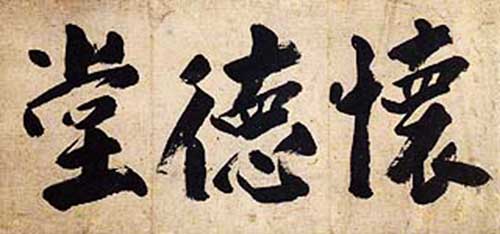 懷德堂